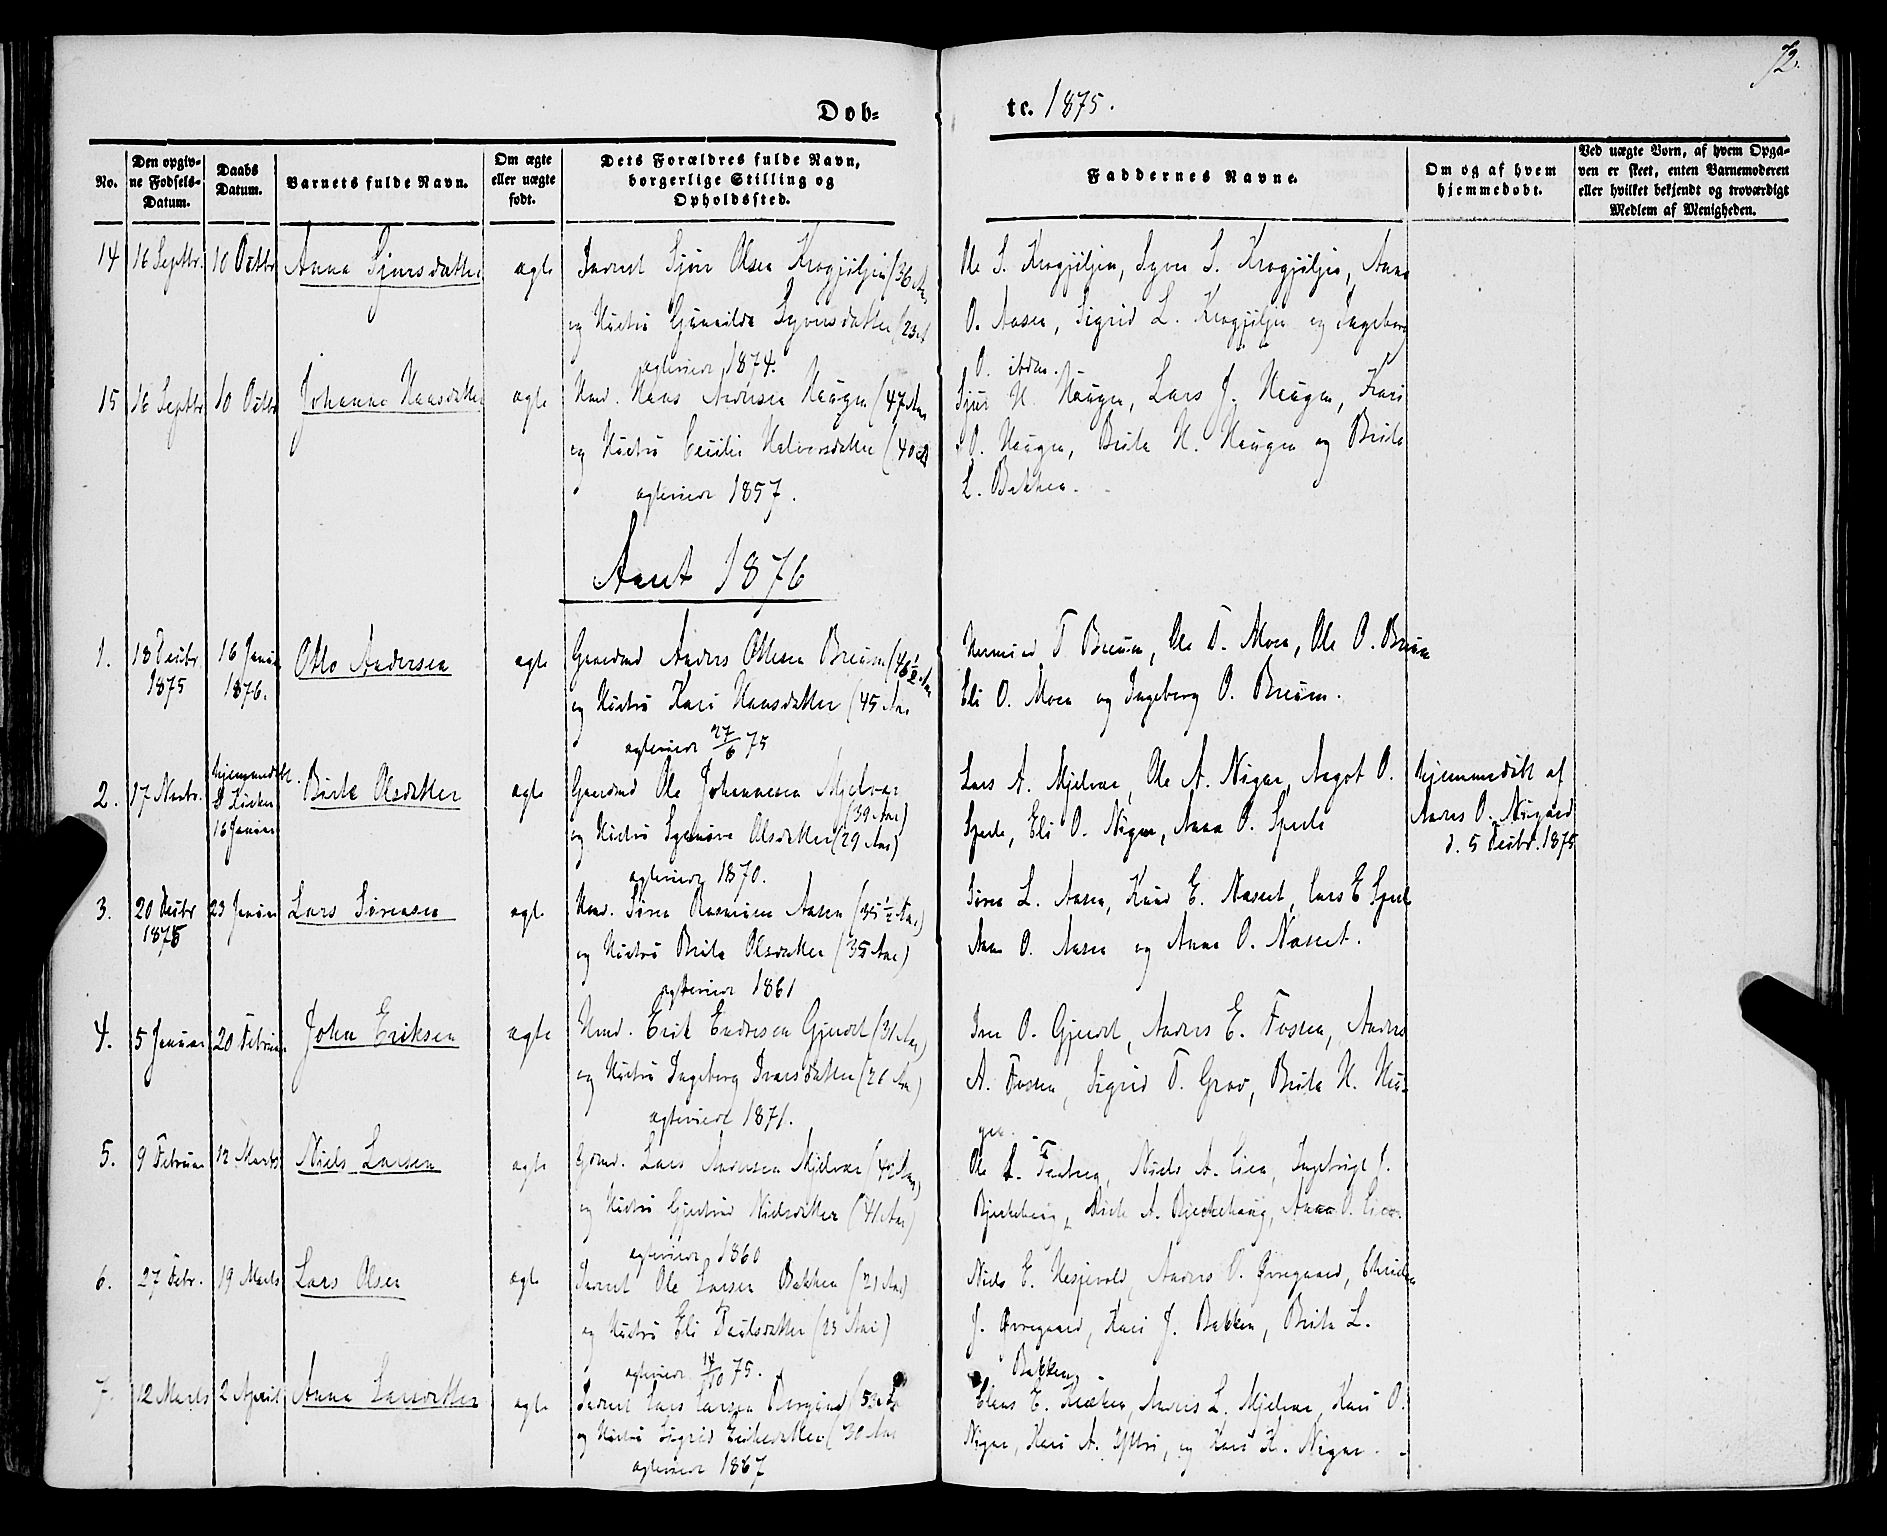 72.
Døb=
te. 1875.
No.
Den opgiv-
ne Fødsels-
Datum.
Daabs
Datum.
Barnets fulde Navn.
Om ægte
eller uægte
født.
Dets Forældres fulde Navn,
borgerlige Stilling og
Opholdssted.
Faddernes Navne.
Om og af hvem
hjemmedøbt.
Ved uægte Børn, af hvem Opga-
ven er skeet, enten Barnemoderen
eller hvilket bekjendt og troværdigt
Medlem af Menigheden.
14 16 Septbr. 10 Octbr Anna Sjursdatter ægte Inderst Sjur Olsen Krogjiljen (36 Aar
og Hustru Gunnilda Syversdatter (23
ægteviede 1874.
Ole S. Krogjiljen, Syver S. Krogjiljen, Anna
O. Aasen, Sigrid L. Krogjiljen og Ingeborg
O. ibdm.
15 16 Septbr 10 Octbr Johanna Hansdatter ægte Hmd. Hans Andersen Haugen (47 Aar
og Hustru Cecilie Halvorsdatter (40
ægteviede 1857.
Sjur H. Haugen, Lars J. Haugen, Kari
O. Haugen, Brite H. Haugen og Brite
L. Bakken.
Aaret 1876
1. 18 Decbr 1875 16 Januar 1876. Otto Andersen ægte Gaardmd Anders Ottesen Breum (46½ Aar
og Hustru Kari Hansdatter (45 Aar
ægteviede 27/6 75
T Breum, Ole T. Moen, Ole O. Breum
Eli O. Moen og Ingeborg O. Breum.
2. 17 Novbr. hjemmedøbt i Kirken 16 Januar Brite Olsdatter ægte Gaardmd Ole Johannesen Mjelvær
(39 Aar)
og Hustru Synnøve Olsdatter (29 Aar)
ægteviede 1870.
Lars A. Mjelvær, Ole A. Nigar, Aagot O.
Sperle, Eli O. Nigar, Anna O. Sperle
Hjemmedøbt af
Anders O. Nigaard
d. 5 Decbr. 1875
3. 20 Decbr 1875 23 Januar Lars Sørensen ægte Hmd. Søren Rasmusen Aasen (35½ Aar)
og Hustru Brite Olsdatter (35 Aar)
ægteviede 1861
Søren L. Aasen, Knud E. Næset, Lars E Sperle
O. Aasen og Anna O. Næset.
4. 5 Januar 20 Februar John Eriksen ægte Hmd. Erik Endresen Gjerde (31 Aar)
og Hustru Ingeborg Iversdatter (26 Aar)
ægteviede 1871.
Iver O. Gjerde, Anders E. Fossen, Anders
A. Fossen, Sigrid T. Grov, Brite H. Hau-
gen.
5. 9 Februar 12 Marts Niels Larsen ægte Gdmd. Lars Andersen Mjelvær (42 Aar)
og Hustru Gjertrud Nielsdatter (41 Aar)
ægteviede 1860
Ole L. Fonberg, Niels A. Lien, Ingebrigt J.
Bjerkehaug, Brite A. Bjerkehaug, Anna O. Lien.
6. 27 Febr. 19 Marts Lars Olsen ægte Inderst Ole Larsen Bakken (21 Aar)
og Hustru Eli Paulsdatter (23 Aar)
ægteviede 14/10 75.
Niels E. Hesjevold, Anders O. Øvregaard,
J. Øvregaard, Kari J. Bakken, Brite L.
Bakken.
7. 12 Marts 2 April Anna Larsdatter ægte Inderst Lars Larsen
og Hustru Sigrid Eriksdatter (30 Aar
ægteviede 1867
Claus E. Anders L. Mjelvær, Kari O.
Nigar, Kari A. Yttri, og Kari K. Nigar.